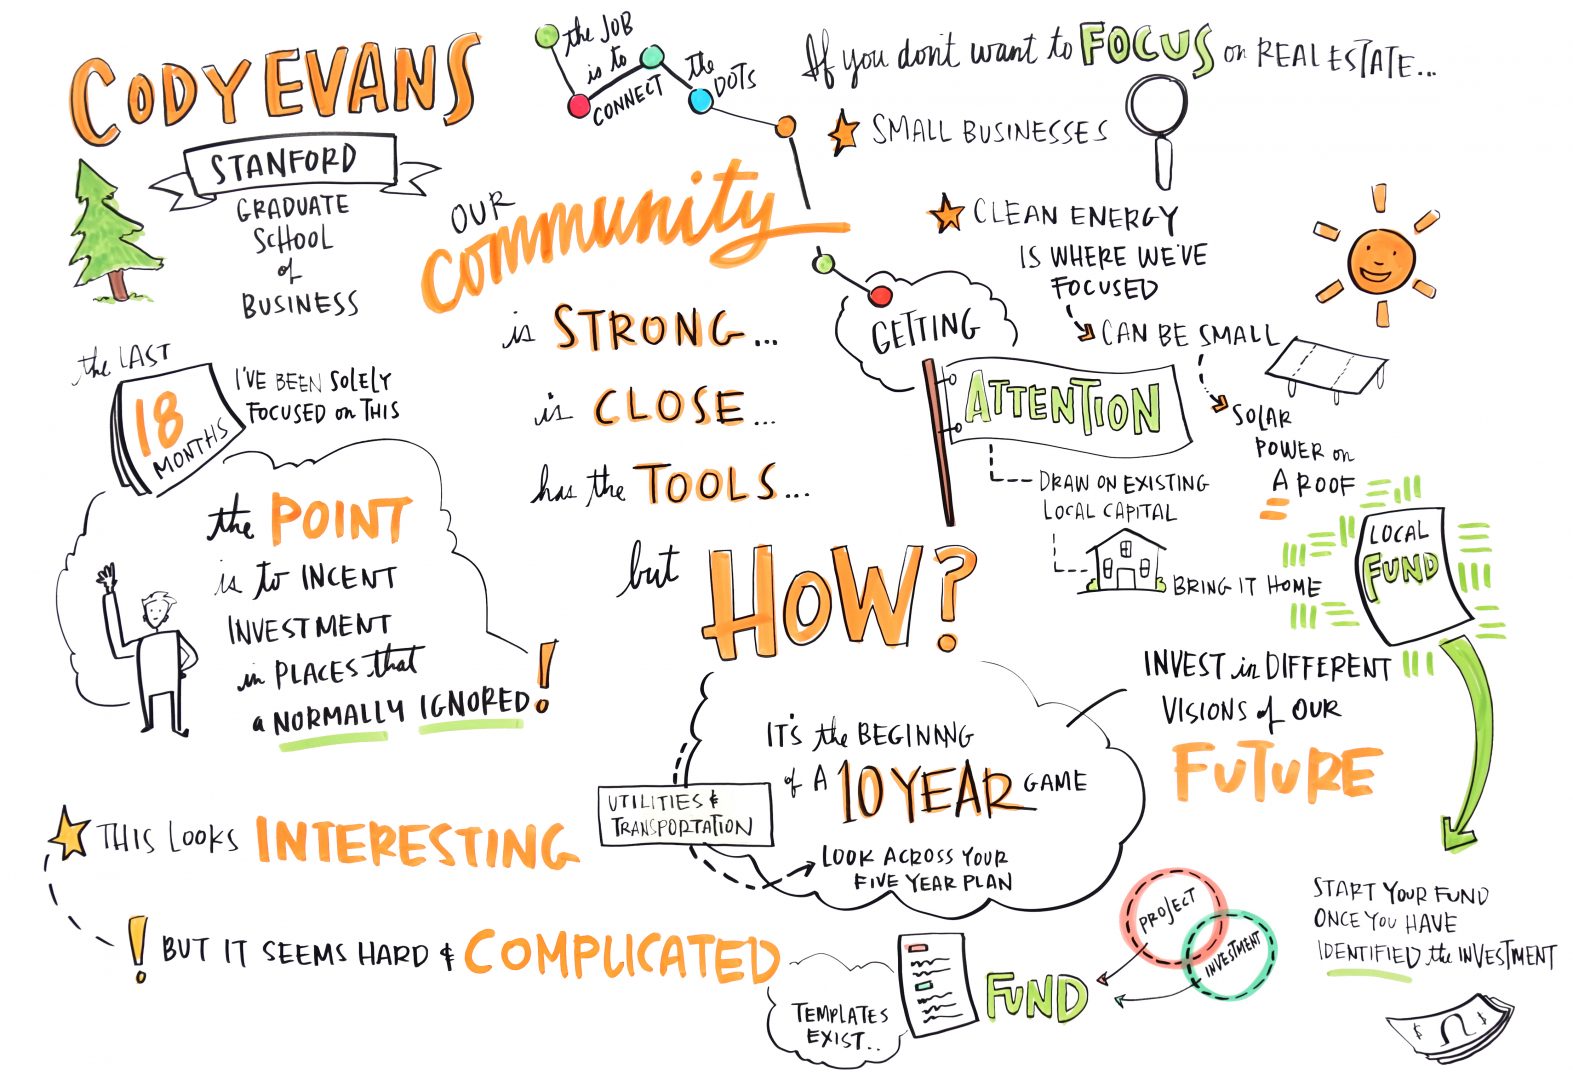 CODY EVANS
STANFORD
GRADUATE
SCHOOL
of
BUSINESS
the LAST
18
MONTHS
I'VE BEEN SOLELY
FOCUSED on THIS
the POINT
is to INCENT
INVESTMENT
in PLACES that
a NORMALLY IGNORED!
the JOB
is to
CONNECT
the
DOTS
OUR
community
is STRONG...
is CLOSE...
has the TOOLS...
but HOW?
If you don't want to FOCUS on REAL ESTATE...
SMALL BUSINESSES
CLEAN ENERGY
IS WHERE WE'VE
FOCUSED
CAN BE SMALL
SOLAR
POWER on
A ROOF
GETTING
ATTENTION
DRAW ON EXISTING
LOCAL CAPITAL
BRING IT HOME
LOCAL
FUND
INVEST in DIFFERENT
VISIONS of OUR
FUTURE
IT'S the BEGINING
of A 10 YEAR GAME
UTILITIES &
TRANSPORTATION
LOOK ACROSS YOUR
FIVE YEAR PLAN
THIS LOOKS INTERESTING
! BUT IT SEEMS HARD & COMPLICATED
TEMPLATES
EXIST..
FUND
PROJECT
INVESTMENT
START YOUR FUND
ONCE YOU HAVE
IDENTIFIED the INVESTMENT
$ $